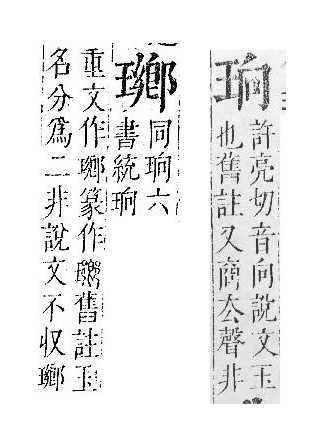 珦
許亮切音向說文玉
也舊註又商去聲非
𤪧
同珦六
書統珦
重文作𤪧篆作𤪧舊註玉
名分爲二非說文不収𤪧